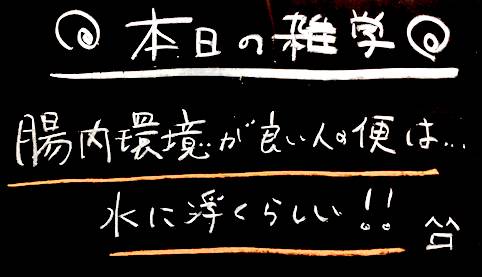 本日の雑学
腸内環境が良い人の便は…
水に浮くらしい!!